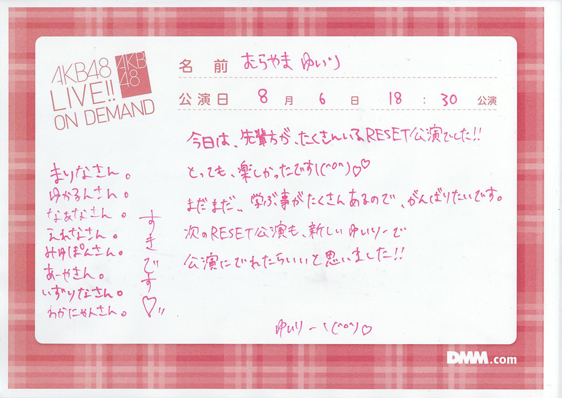 AKB48
LIVE!!
ON DEMAND
AKB
48
名 前 むらやま ゆいり
公演日 8 月 6 日 18 : 30 公演
今日は、先輩方が、たくさんいるRESET公演でした!!
とっても、楽しかったです!(^o^)♡♡
まだまだ、、学ぶ事がたくさんあるので、がんばりたいです。
次のRESET公演も、新しいゆいりーで
公演にでれたらいいと思いました!!
ゆいりー\(^o^)♡
まりなさん。
ゆかるんさん。
なあなさん。
えれなさん。
みゆぽんさん。
あーやさん。
いずりなさん。
わかにゃんさん。
すきです♡!!
DMM.com